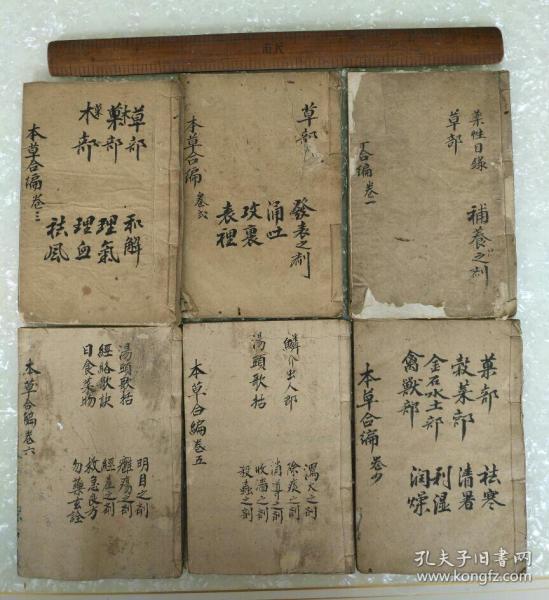 市尺
藥性目錄
草部
補養之剂
合編 卷一
草部
發表之剂
涌吐
攻裏
表裡
本草合编
草部
菓部
木部
和解
理氣
理血
祛风
本草合编 卷三
菓部
穀菜部
金石水土部
禽獸部
祛寒
清暑
利湿
润燥
本草合编
鱗介虫人部
湯頭歌括
瀉火之剂
除痰之剂
消導之剂
收澁之剂
殺蟲之剂
本草合編 卷五
湯頭歌括
經絡歌訣
日食菜物
明目之剂
癰瘍之剂
經產之剂
救急良方
勿藥玄詮
本草合編 卷六
孔夫子旧書网
www.kongfz.com